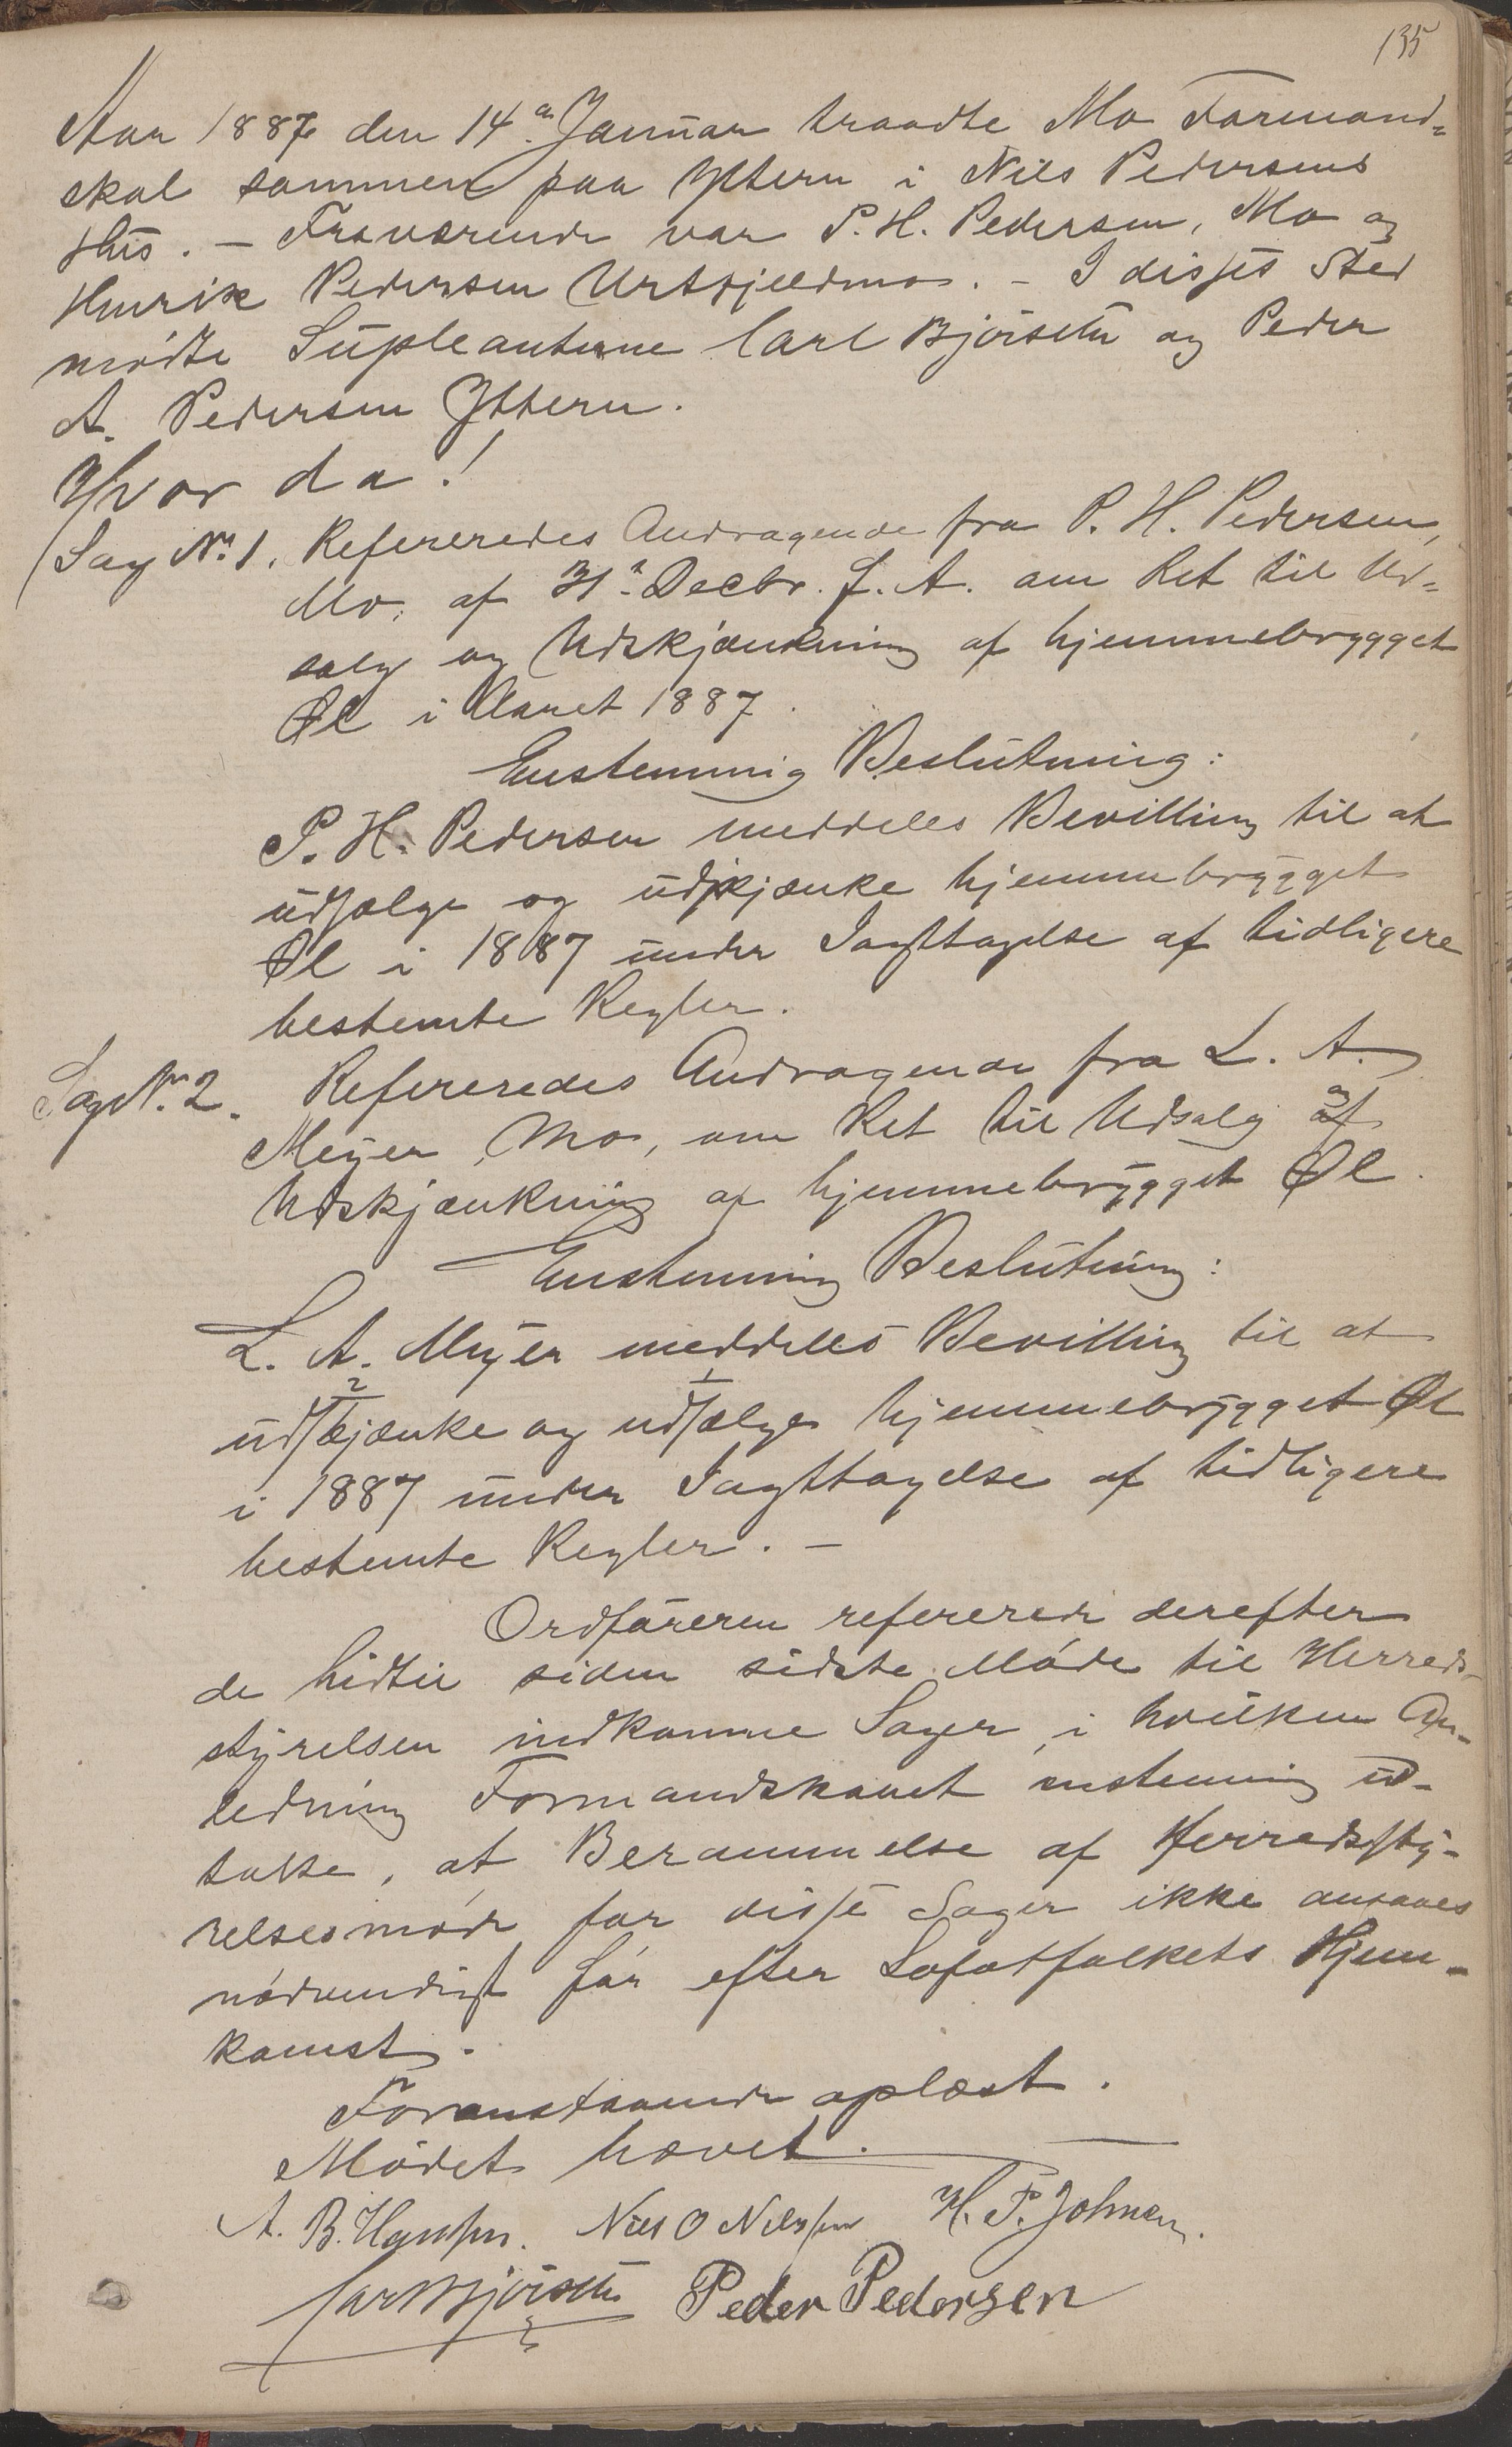 135
Aar 1887 den 14de Januar traadte Mo Formand-
skab sammen paa Yttern i Nils Pedersens
Hus. – Fraværende var P. H. Pedersen, Mo og
Henrik Pedersen Urtfjeldmo. – I disses Sted
mødte Supleanterne Carl Bjørseth og Peder
A. Pedersen Yttern.
Hvor da!
Sag No. 1. Refereredes Andragende fra P. H. Pedersen,
Mo, af 31te Decbr. f. A. om Ret til Ud-
salg og Udskjænkning af hjemmebrygget
Øl i Aaret 1887.
Enstemmig Beslutning:
P. H. Pedersen meddeles Bevilling til at
udsælge og udskjænke hjemmebrygget
Øl i 1887 under Iagttagelse af tidligere
bestemte Regler.
Sag No. 2. Refereredes Andragende fra L. A.
Meyer, Mo, om Ret til Udsalg og
Udskjænkning af hjemmebrygget Øl.
Enstemmig Beslutning:
L. A. Meyer meddeles Bevilling til at
2 1
udskjænke og udsælge hjemmebrygget Øl
i 1887 under Iagttagelse af tidligere
bestemte Regler. –
Ordføreren refererede derefter
de hidtil siden sidste Møde til Herreds-
styrelsen indkomne Sager, i hvilken An-
ledning Formandskabet enstemmig ud-
talte, at Berammelse af Herredssty-
relsesmøde for disse Sager ikke ansaaes
nødvendigt før efter Lofotfolkets Hjem-
komst.
Foranstaaende oplæst.
Mødet hævet.
A. B. Hanssen. Nils O Nilssen H. P. Johnsen.
Carl Bjørseth Peder Pedersen